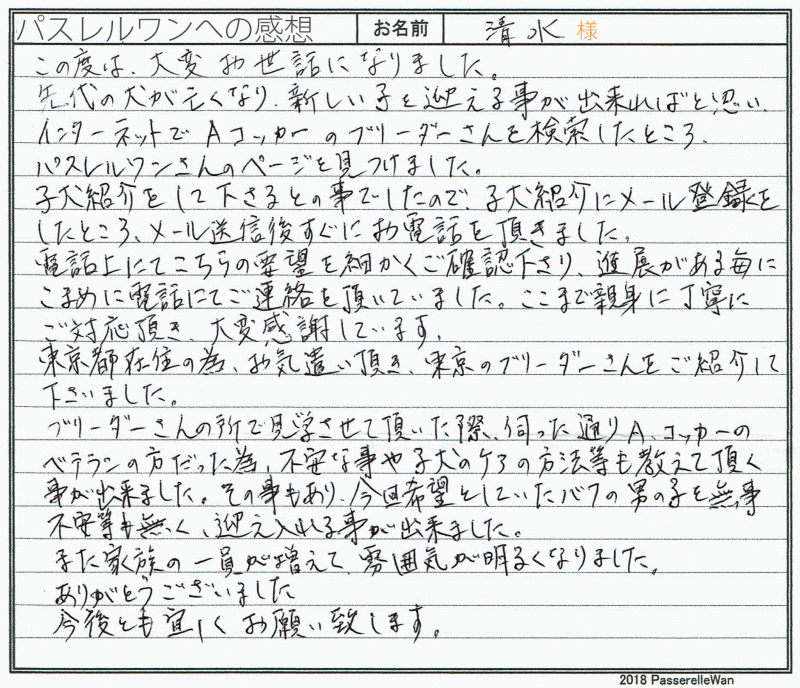 パスレルワンへの感想 お名前 清水 様
この度は、大変お世話になりました。
先代の犬が亡くなり、新しい子を迎える事が出来ればと思い、
インターネットでAコッカーのブリーダーさんを検索したところ、
パスレルワンさんのページを見つけました。
子犬紹介をして下さるとの事でしたので、子犬紹介にメール登録を
したところ、メール送信後すぐにお電話を頂きました。
電話上にてこちらの要望を細かくご確認下さり、進展がある毎に
こまめに電話にてご連絡を頂いていました。ここまで親身に丁寧に
ご対応頂き、大変感謝しています。
東京都在住の為、お気遣い頂き、東京のブリーダーさんをご紹介して
下さいました。
ブリーダーさんの所で見学させて頂いた際、伺った通りA.コッカーの
ベテランの方だった為、不安な事や子犬のケアの方法等も教えて頂く
事が出来ました。その事もあり、今回希望としていたバフの男の子を無事
不安等も無く、迎え入れる事が出来ました。
また家族の一員が増えて、雰囲気が明るくなりました。
ありがとうございました
今後とも宜しくお願い致します。
2018 PasserelleWan